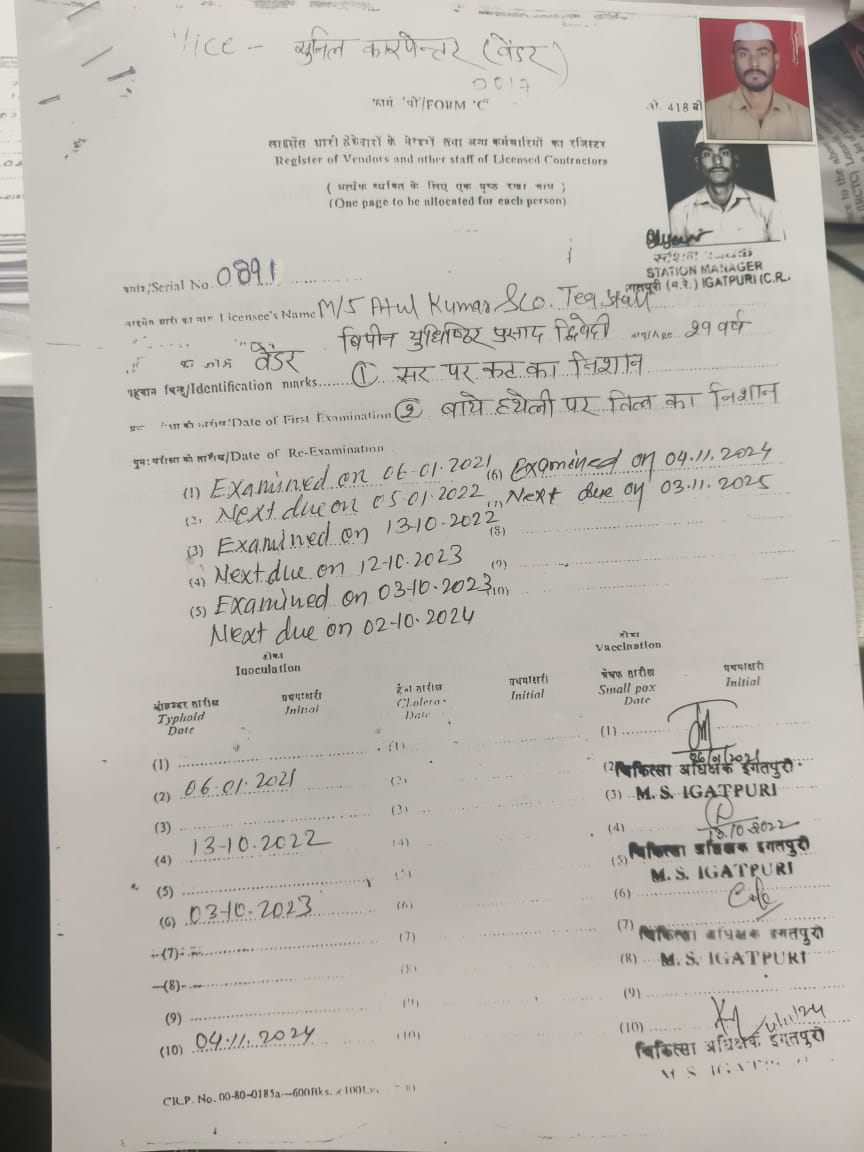 Vice - सुनिल कारपेन्टर (वेंडर)
0017
फार्म 'सी'/FORM 'C'
जी. 418 बी
लाइसेंस धारी ठेकेदारों के वेन्डरों तथा अन्य कर्मचारियों का रजिस्टर
Register of Vendors and other staff of Licensed Contractors
( प्रत्येक व्यक्ति के लिए एक पृष्ठ रखा जाय )
(One page to be allocated for each person)
STATION MANAGER
इगतपुरी (म.रे.) IGATPURI (C.R.
Serial No. 0891
Licensee's Name M/S Atul Kumar &Co. Tea Stall
वेंडर बिपीन युधिष्ठिर प्रसाद द्विवेदी आयु/Age 29 वर्ष
पहचान चिन्ह/Identification marks......① सर पर कट का निशान
Date of First Examination ② बाये हथेली पर तिल का निशान
पुनः परीक्षा की तारीख/Date of Re-Examination
(1) Examined on 06-01-2021 (6) Examined on 04.11.2024
(2) Next due on 05-01-2022 Next due on 03.11.2025
(3) Examined on 13-10-2022 (8)
(4) Next due on 12-10-2023 (9)
(5) Examined on 03-10-2023 (10)
Next due on 02-10-2024
टीका टीका
Inoculation Vaccination
तारीख हैजा तारीख चेचक तारीख
Typhoid Initial Cholera Initial Small pox Initial
Date Date Date
(1) (1) (1)
06/01/2021
(2) 06-01-2021 (2) (2) चिकित्सा अधिक्षक इगतपुरी
(3) (3) (3) M. S. IGATPURI
(4) 13-10-2022 (4) (4) 13.10.2022
(5) (5) (5) चिकित्सा अधिक्षक इगतपुरी
M. S. IGATPURI
(6) 03-10-2023 (6) (6)
(7) (7) (7) चिकित्सा अधिक्षक इगतपुरी
(8) (8) (8) M. S. IGATPURI
(9) (9) (9)
(10) 04.11.2024 (10) (10)
चिकित्सा अधिक्षक इगतपुरी
M. S. IGATPURI
CR.P. No. 00-80-0185a—600Bks. x 100Lv.